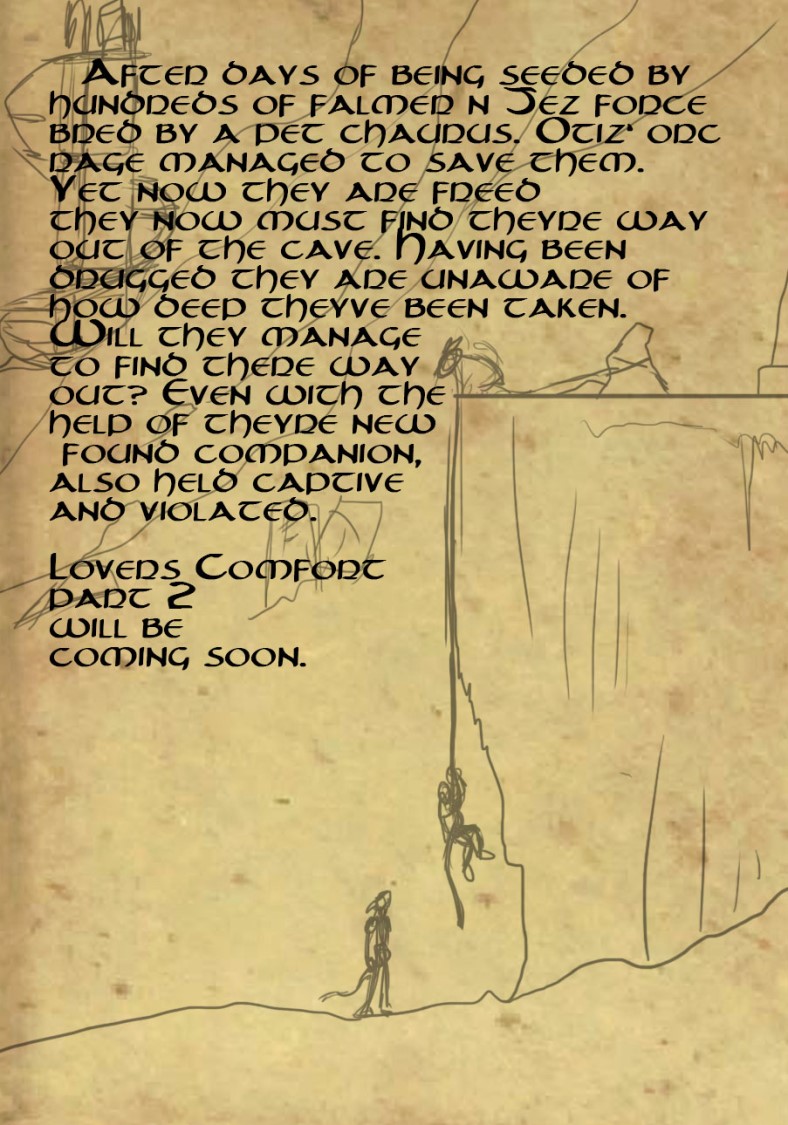 After days of being seeded by
hundreds of falmer n Jez force
bred by a pet chaurus. Otiz' orc
rage managed to save them.
Yet now they are freed
they now must find theyre way
out of the cave. Having been
drugged they are unaware of
how deep theyve been taken.
Will they manage
to find there way
out? Even with the
help of theyre new
found companion,
also held captive
and violated.
Lovers Comfort
part 2
will be
coming soon.